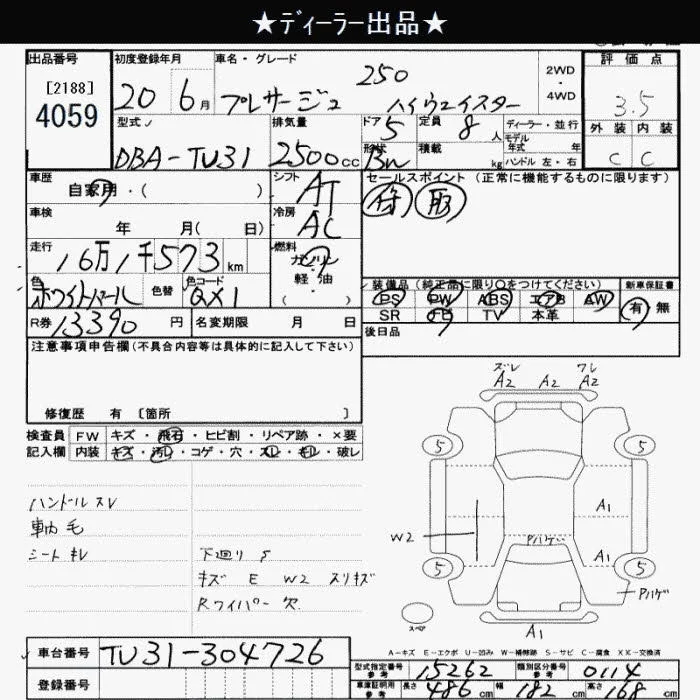 ★ディーラー出品★
出品番号
[2188]
4059
初度登録年月
20 6月
車名・グレード
250
プレサージュ ハイウェイスター
2WD
・
4WD
評価点
3.5
外装 内装
C C
型式
DBA-TU31
排気量
2500cc
ドア 5
定員 8人
形状 Bn
積載 kg
ディーラー・並行
モデル年式 年
ハンドル 左・右
車歴
自家用・( )
シフト AT
車検
年 月( 日)
冷房 AC
走行
16万1千573km
燃料
ガソリン
・
軽油
( )
色
ホワイトパール
色替
色コード
QX1
R券 13390円
名変期限 月 日
セールスポイント (正常に機能するものに限ります)
装備品 (純正品に限り○をつけてください)
PS PW ABS エアB AW
SR TV 本革
新車保証書
有 無
後日品
注意事項申告欄(不具合内容等は具体的に記入して下さい)
修復歴 有 〔箇所 〕
検査員記入欄
FW キズ・飛石・ヒビ割・リペア跡・×要
内装 キズ・汚レ・コゲ・穴・スレ・キレ・破レ
ハンドル スレ
車内 毛
シート キレ
下廻り S
キズ E W2 スリキズ
Rワイパー欠
ズレ ワレ
A2 A2 A2
5 5
A1
W2
Pハゲ
A1
5 5
Pハゲ
スペア
A1
A-キズ E-エクボ U-凹み W-補修跡 S-サビ C-腐食 XX-交換済
車台番号 TU31-304726
登録番号
型式指定番号 参考 15262
類別区分番号 参考 0114
車庫証明用 参考 長さ 486cm 幅 182cm 高さ 168cm